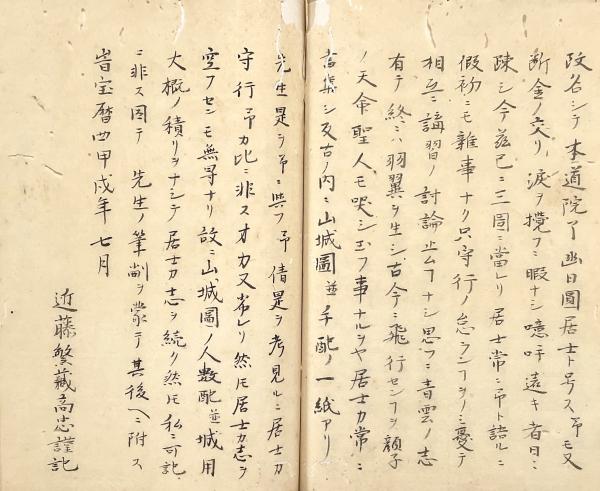 改名シテ本道院了幽日圓居士ト号ス予モ又
断金ノ交リ涙ヲ攪フニ暇ナシ噫吁遠キ者日々ニ
疎シ今茲已ニ三周ニ當レリ居士常ニ予ト語ルニ
假初ニモ雜事ナク只守行ノ怠ランヿヲノミ憂テ
相互ニ講習ノ討論止ムヿナシ思フニ青雲ノ志
有テ終ニハ羽翼ヲ生シ古今ニ飛行センヿヲ顔子
ノ天命聖人モ哭シ玉フ事ナルヲヤ居士カ常ニ
書集シ反古ノ内ニ山城圖並手配ノ一紙アリ
先生是ヲ予ニ與フ予倩是ヲ考見ルニ居士カ
守行予カ比ニ非スオカ又劣レリ然モ居士カ志ヲ
空フセンモ無寻ナリ設ニ山城圖ノ人数配並城用
大概ノ積リヲナシテ居士カ志ヲ続ク然モ私ニ可記
ニ非ス因テ 先生ノ筆削ヲ蒙テ其後ヘニ附ス
旹宝暦四甲戌年七月
近藤繁蔵高忠謹記